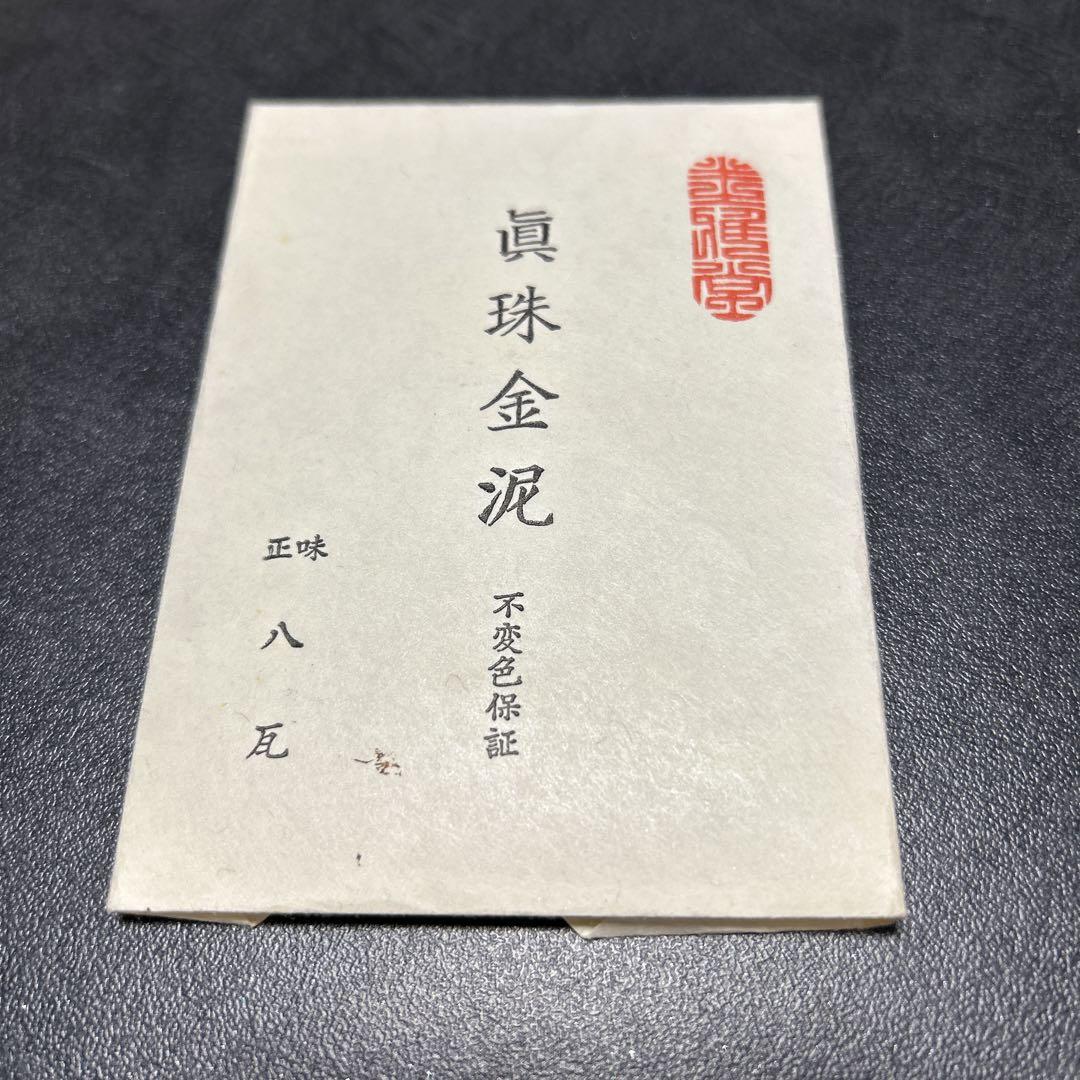 眞珠金泥
不変色保証
正味
八
瓦